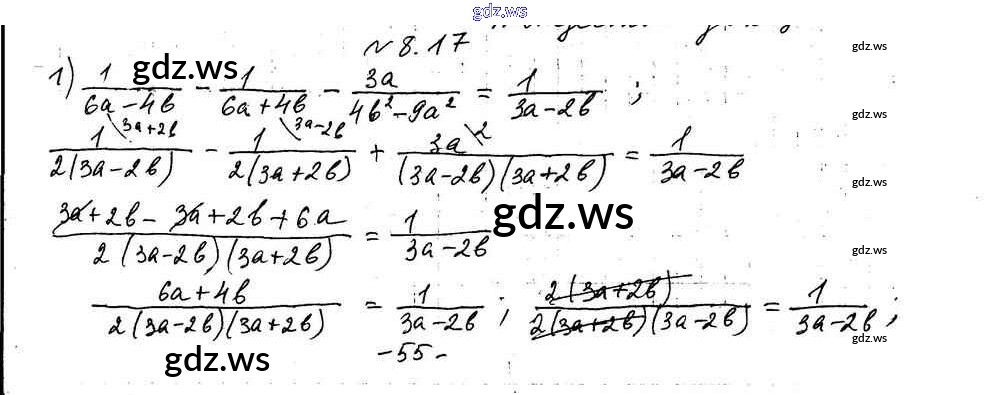 gdz.ws
№ 8.17
1) 1/(6a-4b) - 1/(6a+4b) - 3a/(4b²-9a²) = 1/(3a-2b) ;
gdz.ws
gdz.ws
1\3a+2b/(2(3a-2b)) - 1\3a-2b/(2(3a+2b)) + 3a\2/((3a-2b)(3a+2b)) = 1/(3a-2b)
gdz.ws
gdz.ws
(3a+2b-3a+2b+6a)/(2(3a-2b)(3a+2b)) = 1/(3a-2b)
gdz.ws
gdz.ws
(6a+4b)/(2(3a-2b)(3a+2b)) = 1/(3a-2b) ; 2(3a+2b)/(2(3a+2b)(3a-2b)) = 1/(3a-2b) ;
gdz.ws
gdz.ws
-55-